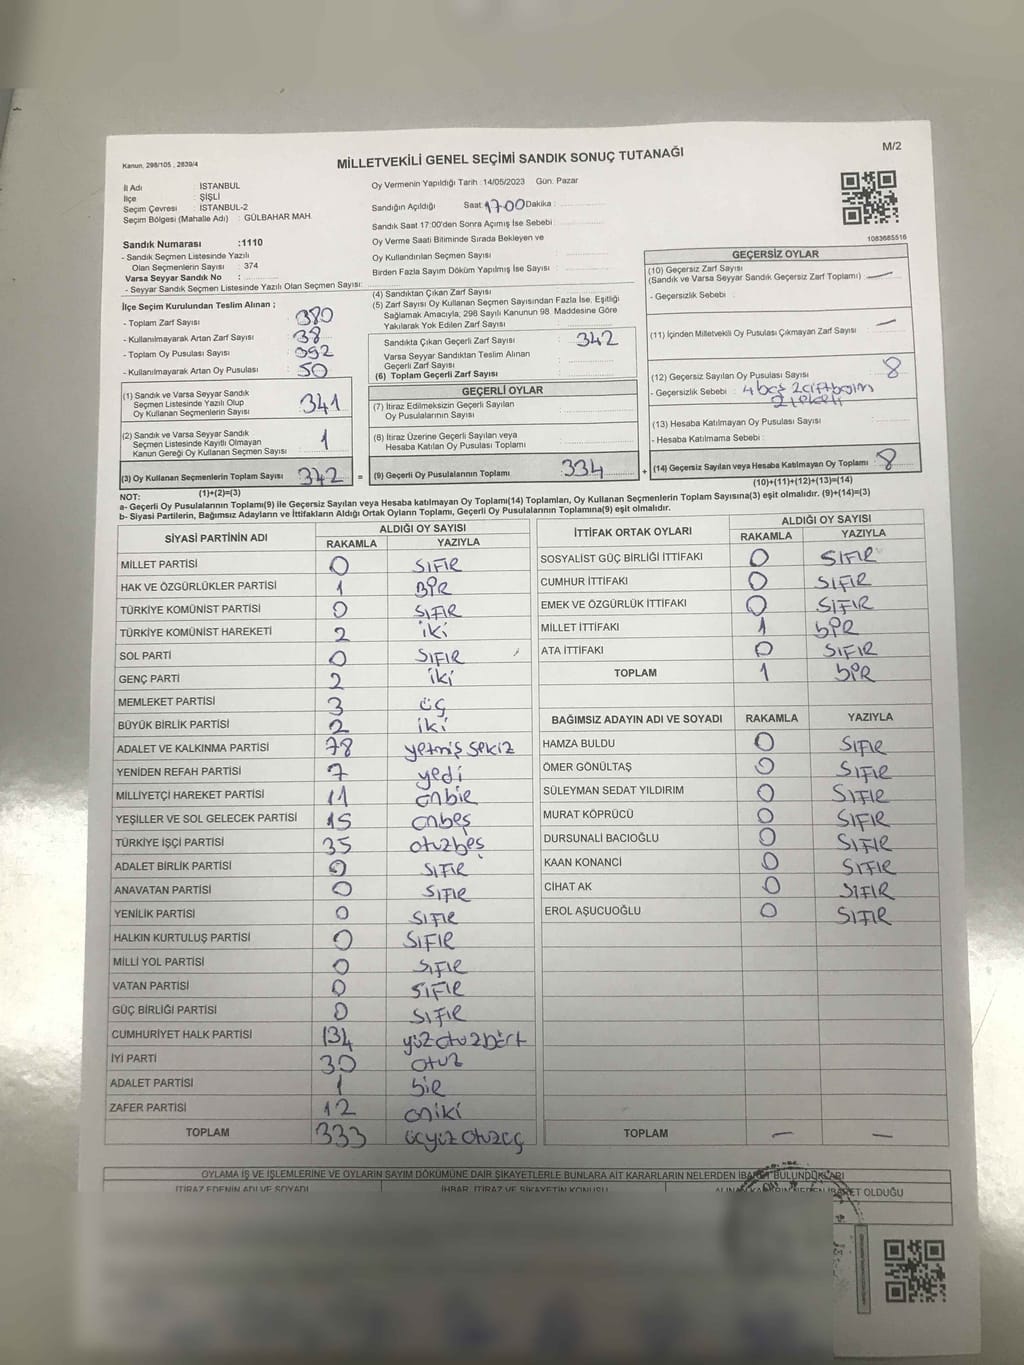 Kanun, 298/105 , 2839/4
MİLLETVEKİLİ GENEL SEÇİMİ SANDIK SONUÇ TUTANAĞI
M/2
İl Adı : İSTANBUL
İlçe : ŞİŞLİ
Seçim Çevresi : İSTANBUL-2
Seçim Bölgesi (Mahalle Adı) : GÜLBAHAR MAH.
Oy Vermenin Yapıldığı Tarih :14/05/2023 Gün: Pazar
Sandığın Açıldığı Saat: 17:00 Dakika :
Sandık Saat 17:00'den Sonra Açımış İse Sebebi :
Oy Verme Saati Bitiminde Sırada Bekleyen ve
Oy Kullandırılan Seçmen Sayısı :
Birden Fazla Sayım Döküm Yapılmış İse Sayısı :
1083685516
Sandık Numarası :1110
- Sandık Seçmen Listesinde Yazılı
Olan Seçmenlerin Sayısı : 374
Varsa Seyyar Sandık No :
- Seyyar Sandık Seçmen Listesinde Yazılı Olan Seçmen Sayısı:
İlçe Seçim Kurulundan Teslim Alınan ;
- Toplam Zarf Sayısı : 380
- Kullanılmayarak Artan Zarf Sayısı : 38
- Toplam Oy Pusulası Sayısı : 392
- Kullanılmayarak Artan Oy Pusulası : 50
(1) Sandık ve Varsa Seyyar Sandık
Seçmen Listesinde Yazılı Olup
Oy Kullanan Seçmenlerin Sayısı 341
(2) Sandık ve Varsa Seyyar Sandık
Seçmen Listesinde Kayıtlı Olmayan
Kanun Gereği Oy Kullanan Seçmen Sayısı 1
(3) Oy Kullanan Seçmenlerin Toplam Sayısı 342
(1)+(2)=(3)
(4) Sandıktan Çıkan Zarf Sayısı
(5) Zarf Sayısı Oy Kullanan Seçmen Sayısından Fazla İse, Eşitliği
Sağlamak Amacıyla, 298 Sayılı Kanunun 98 Maddesine Göre
Yakılarak Yok Edilen Zarf Sayısı
Sandıkta Çıkan Geçerli Zarf Sayısı 342
Varsa Seyyar Sandıktan Teslim Alınan
Geçerli Zarf Sayısı
(6) Toplam Geçerli Zarf Sayısı
GEÇERLİ OYLAR
(7) İtiraz Edilmeksizin Geçerli Sayılan
Oy Pusulalarının Sayısı
(8) İtiraz Üzerine Geçerli Sayılan veya
Hesaba Katılan Oy Pusulası Toplamı
= (9) Geçerli Oy Pusulalarının Toplamı 334 +
GEÇERSİZ OYLAR
(10) Geçersiz Zarf Sayısı
(Sandık ve Varsa Seyyar Sandık Geçersiz Zarf Toplamı) —
- Geçersizlik Sebebi :
(11) İçinden Milletvekili Oy Pusulası Çıkmayan Zarf Sayısı —
(12) Geçersiz Sayılan Oy Pusulası Sayısı 8
- Geçersizlik Sebebi : 4 boş 2
(13) Hesaba Katılmayan Oy Pusulası Sayısı
- Hesaba Katılmama Sebebi :
(14) Geçersiz Sayılan veya Hesaba Katılmayan Oy Toplamı 8
(10)+(11)+(12)+(13)=(14)
NOT:
a- Geçerli Oy Pusulalarının Toplamı(9) ile Geçersiz Sayılan veya Hesaba katılmayan Oy Toplamı(14) Toplamları, Oy Kullanan Seçmenlerin Toplam Sayısına(3) eşit olmalıdır. (9)+(14)=(3)
b- Siyasi Partilerin, Bağımsız Adayların ve İttifakların Aldığı Ortak Oyların Toplamı, Geçerli Oy Pusulalarının Toplamına(9) eşit olmalıdır.
SİYASİ PARTİNİN ADI ALDIĞI OY SAYISI
RAKAMLA YAZIYLA
MİLLET PARTİSİ 0 SIFIR
HAK VE ÖZGÜRLÜKLER PARTİSİ 1 BİR
TÜRKİYE KOMÜNİST PARTİSİ 0 SIFIR
TÜRKİYE KOMÜNİST HAREKETİ 2 iki
SOL PARTİ 0 SIFIR
GENÇ PARTİ 2 iki
MEMLEKET PARTİSİ 3 üç
BÜYÜK BİRLİK PARTİSİ 2 iki
ADALET VE KALKINMA PARTİSİ 78 yetmiş sekiz
YENİDEN REFAH PARTİSİ 7 yedi
MİLLİYETÇİ HAREKET PARTİSİ 11 onbir
YEŞİLLER VE SOL GELECEK PARTİSİ 15 onbeş
TÜRKİYE İŞÇİ PARTİSİ 35 otuzbeş
ADALET BİRLİK PARTİSİ 0 SIFIR
ANAVATAN PARTİSİ 0 SIFIR
YENİLİK PARTİSİ 0 SIFIR
HALKIN KURTULUŞ PARTİSİ 0 SIFIR
MİLLİ YOL PARTİSİ 0 SIFIR
VATAN PARTİSİ 0 SIFIR
GÜÇ BİRLİĞİ PARTİSİ 0 SIFIR
CUMHURİYET HALK PARTİSİ 134 yüzotuzdört
İYİ PARTİ 30 otuz
ADALET PARTİSİ 1 bir
ZAFER PARTİSİ 12 oniki
TOPLAM 333 üçyüzotuzüç
İTTİFAK ORTAK OYLARI ALDIĞI OY SAYISI
RAKAMLA YAZIYLA
SOSYALİST GÜÇ BİRLİĞİ İTTİFAKI 0 SIFIR
CUMHUR İTTİFAKI 0 SIFIR
EMEK VE ÖZGÜRLÜK İTTİFAKI 0 SIFIR
MİLLET İTTİFAKI 1 bİR
ATA İTTİFAKI 0 SIFIR
TOPLAM 1 bİR
BAĞIMSIZ ADAYIN ADI VE SOYADI RAKAMLA YAZIYLA
HAMZA BULDU 0 SIFIR
ÖMER GÖNÜLTAŞ 0 SIFIR
SÜLEYMAN SEDAT YILDIRIM 0 SIFIR
MURAT KÖPRÜCÜ 0 SIFIR
DURSUNALİ BACIOĞLU 0 SIFIR
KAAN KONANCİ 0 SIFIR
CİHAT AK 0 SIFIR
EROL AŞUCUOĞLU 0 SIFIR
TOPLAM — —
OYLAMA İŞ VE İŞLEMLERİNE VE OYLARIN SAYIM DÖKÜMÜNE DAİR ŞİKAYETLERLE BUNLARA AİT KARARLARIN NELERDEN İBARET BULUNDUKLARI
İTİRAZ EDENİN ADI VE SOYADI İHBAR, İTİRAZ VE ŞİKAYETİN KONUSU OLDUĞU